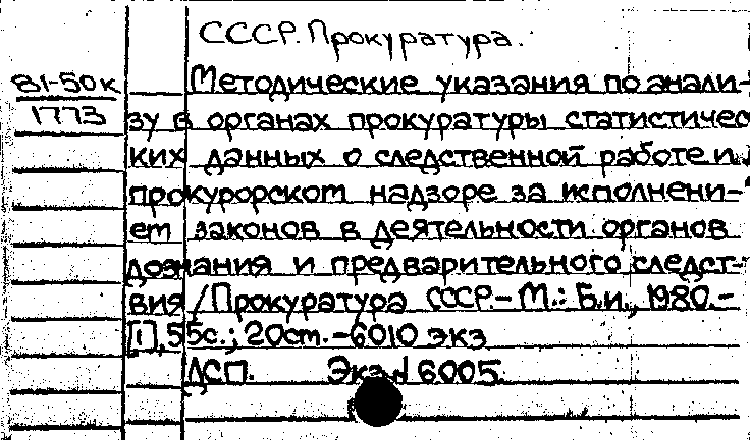 СССР. Прокуратура.
81-50к
1773
Методические указания по анали-
зу в органах прокуратуры статистичес
ких данных о следственной работе и
прокурорском надзоре за исполнени-
ем законов в деятельности органов
дознания и предварительного следст-
вия /Прокуратура СССР.- М.: Б.и., 1980.-
[1], 55с.; 20см. -6010 экз
ДСП. Экз 6005.